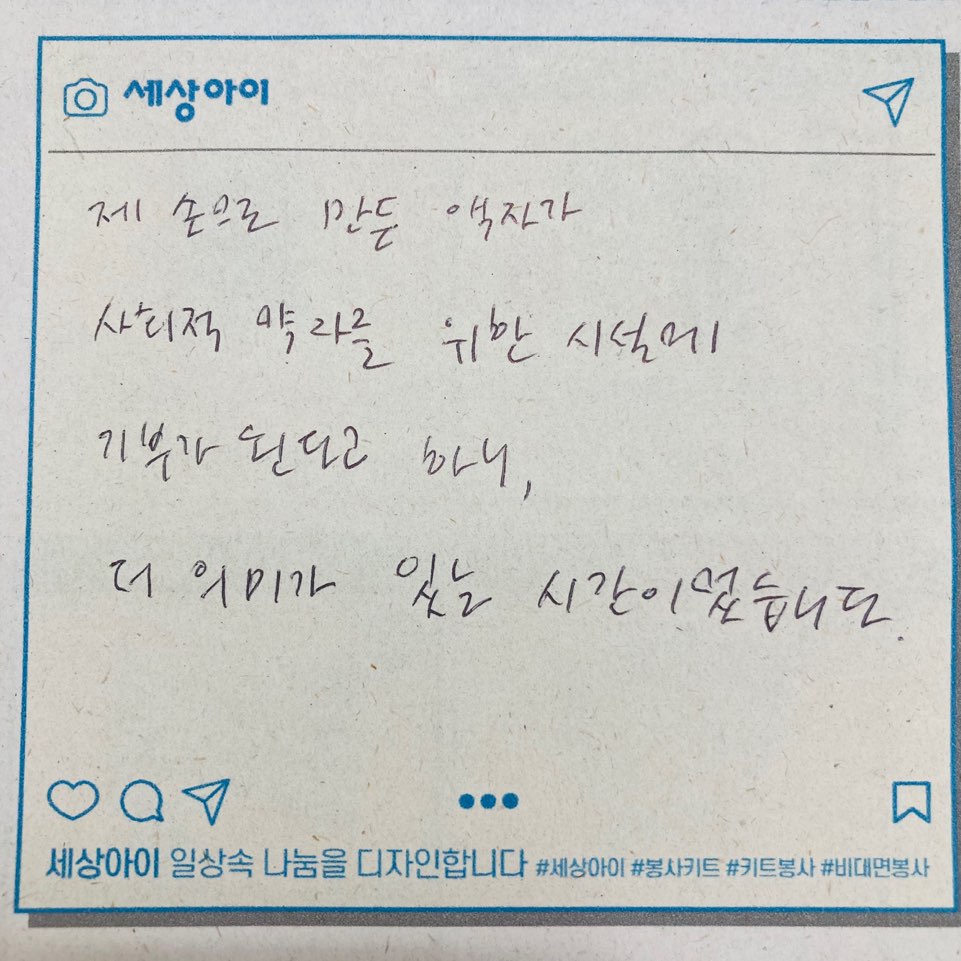 세상아이
제 손으로 만든 액자가
사회적 약자를 위한 시설에
기부가 된다고 하니,
더 의미가 있는 시간이었습니다.
세상아이 일상속 나눔을 디자인합니다 #세상아이 #봉사키트 #키트봉사 #비대면봉사